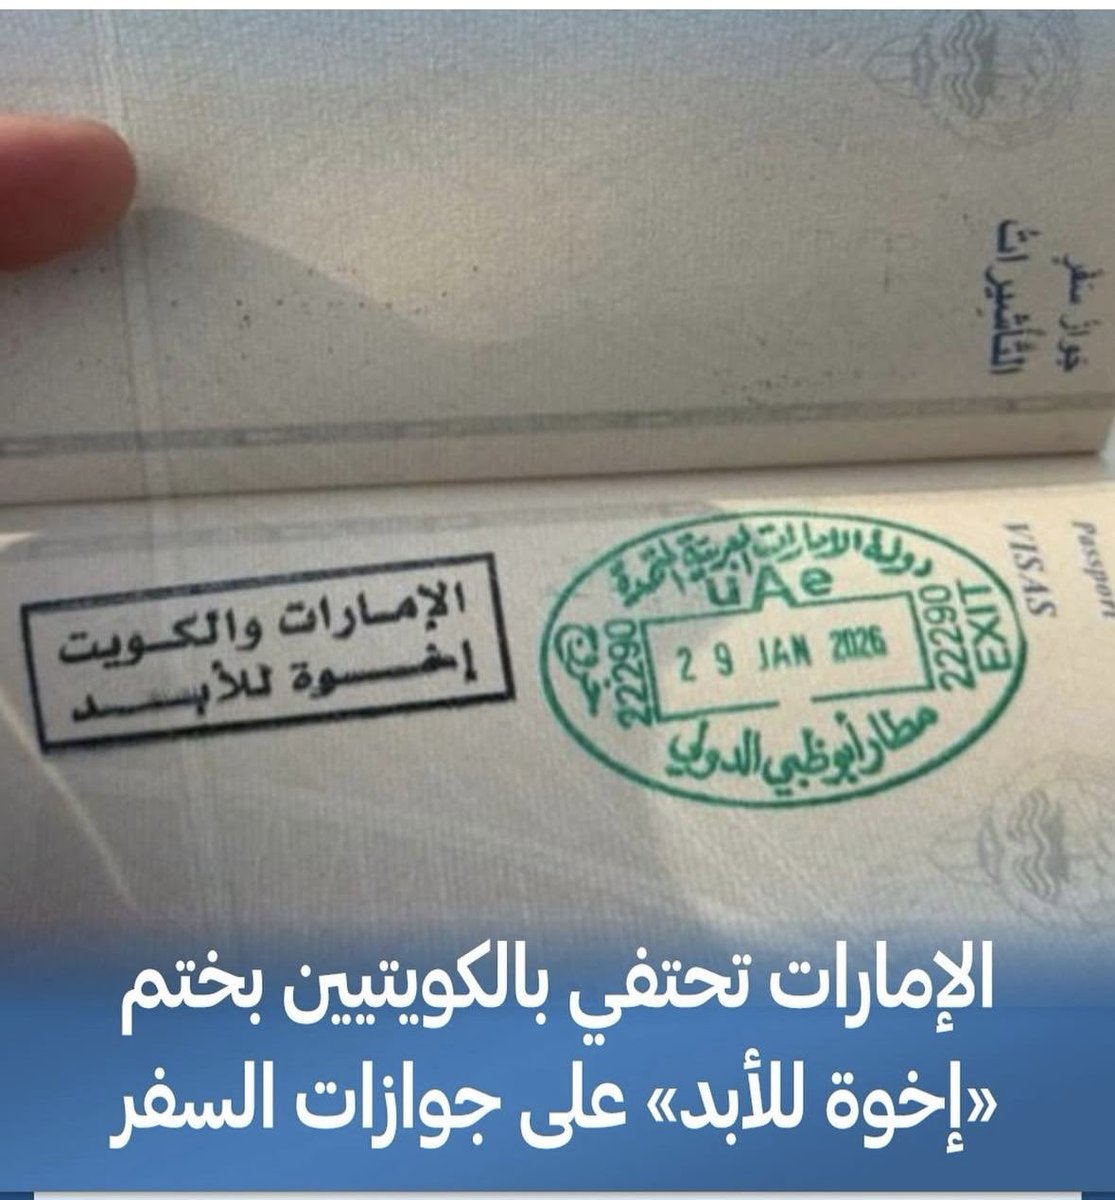 جواز سفر
التأشيرات
Passport
VISAS
الإمارات والكويت
إخوة للأبد
دولة الإمارات العربية المتحدة
UAe
خروج
22290
2 9 JAN 2026
22290
EXIT
مطار أبوظبي الدولي
الإمارات تحتفي بالكويتيين بختم
«إخوة للأبد» على جوازات السفر